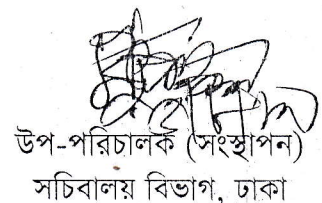 উপ-পরিচালক (সংস্থাপন)
সচিবালয় বিভাগ, ঢাকা